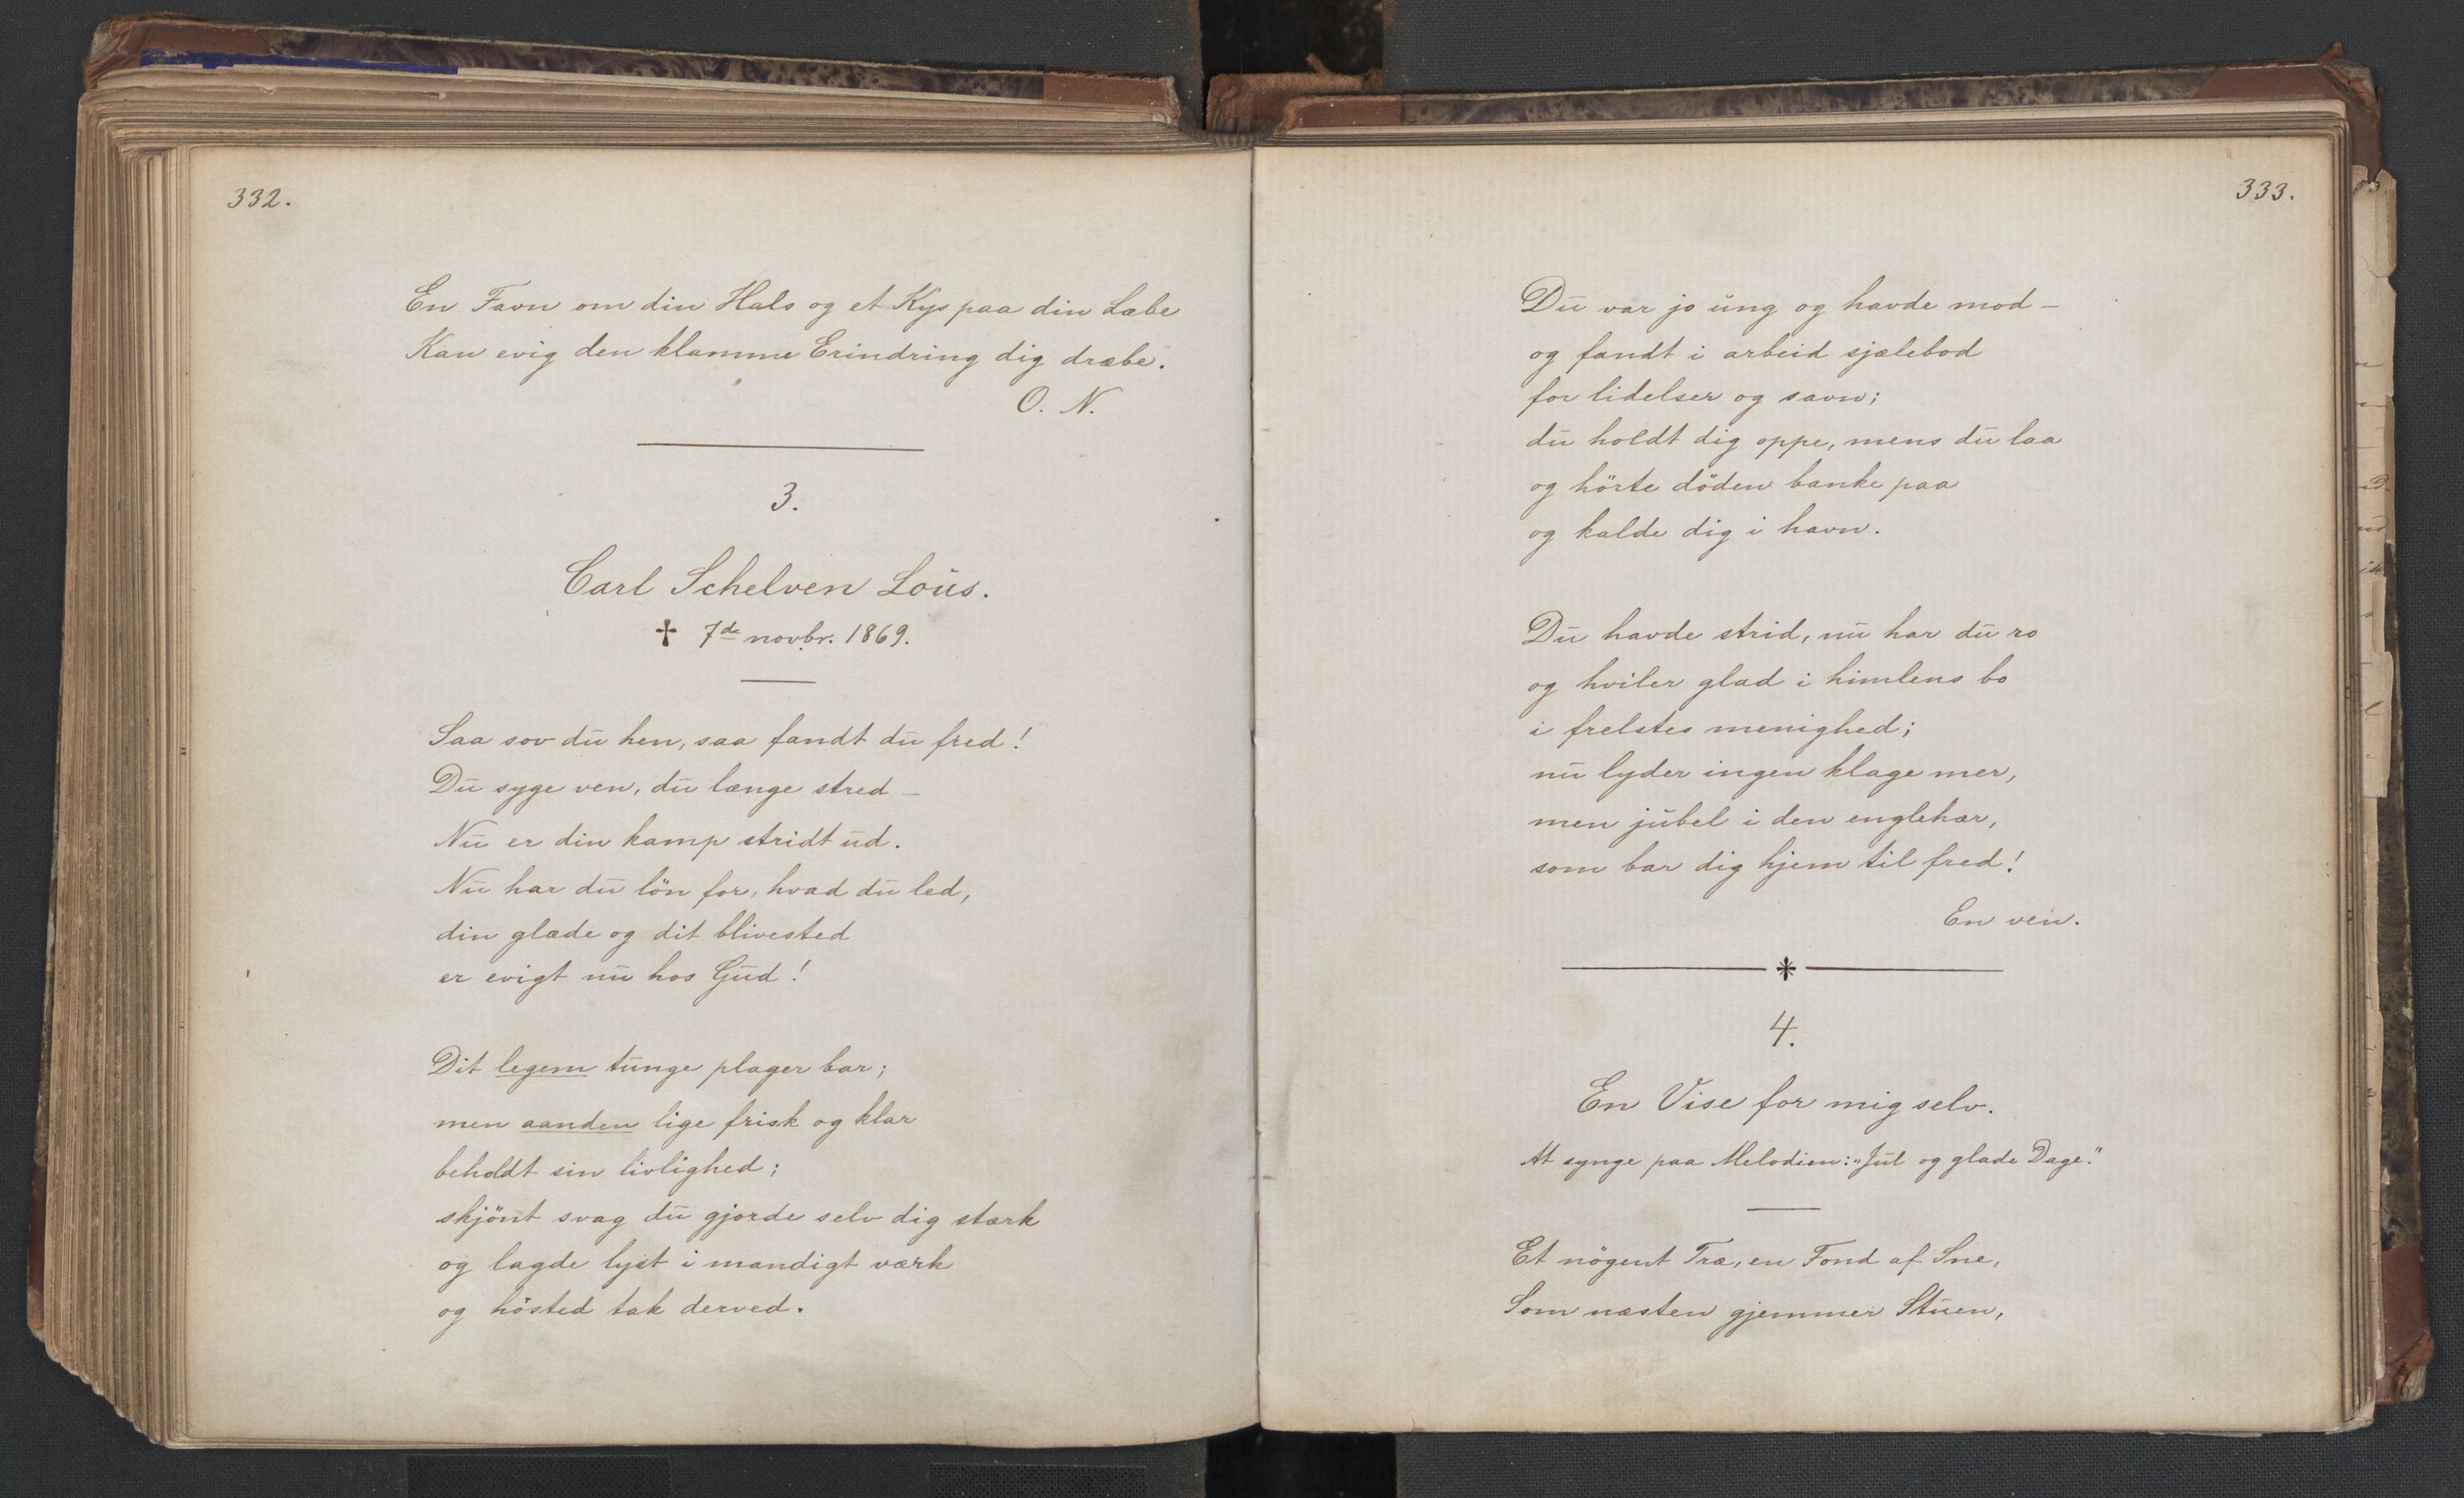 332.
En Favn om din Hals og et Kys paa din Læbe
Kan evig den klamme Erindring dig dræbe.
O. N.
3.
Carl Schelven Lous.
† 7de novbr. 1869.
Saa sov du hen, saa fandt du fred!
Du syge ven, du længe stred –
Nu er din kamp stridt ud.
Nu har du lön for, hvad du led,
din glæde og dit blivested
er evigt nu hos Gud!
Dit legem tunge plager bar;
men aanden lige frisk og klar
beholdt sin livlighed;
skjönt svag du gjorde selv dig stærk
og lagde lyst i mandigt værk
og hösted tak derved.
333.
Du var jo ung og havde mod –
og fandt i arbeid sjælebod
for lidelser og savn;
du holdt dig oppe, mens du laa
og hörte döden banke paa
og kalde dig i havn.
Du havde strid, nu har du ro
og hviler glad i himlens bo
i frelstes menighed;
nu lyder ingen klage mer,
men jubel i den englehær,
som bar dig hjem til fred!
En ven.
4.
En Vise for mig selv.
At synge paa Melodien: „Jul og glade Dage."
Et nögent Træ, en Fond af Sne,
Som næsten gjemmer Stuen,